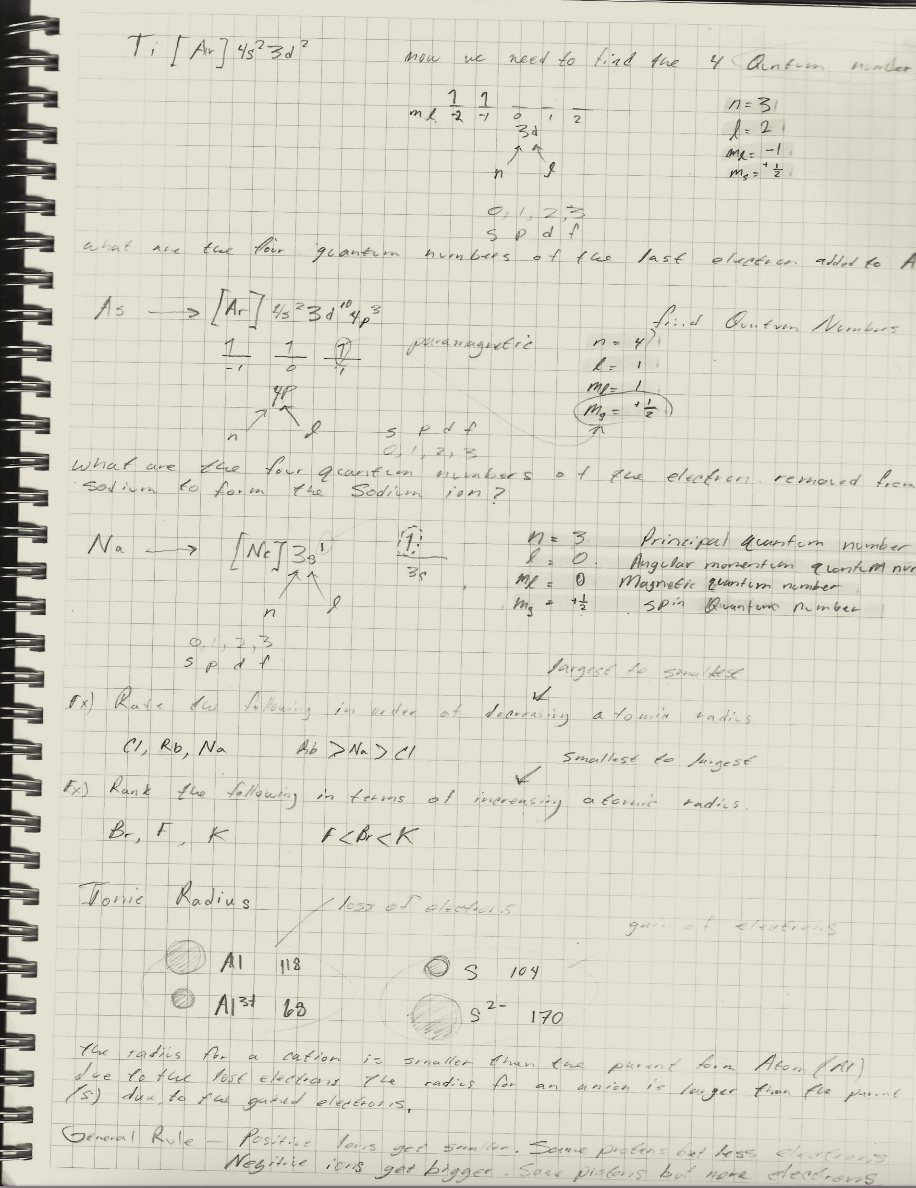 Ti [Ar] 4s² 3d²
now we need to find the 4 Quntum number
ml 1 1 _ _ _
-2 -1 0 1 2
3d
n l
n = 3
l = 2
ml = -1
ms = +1/2
0, 1, 2, 3
s p d f
what are the four quantum numbers of the last electron added to A
As → [Ar] 4s² 3d¹⁰ 4p³
1 1 1
-1 0 1
4p
n l
paramagnetic
find Quntum Numbers
n = 4
l = 1
ml = 1
ms = +1/2
s p d f
0, 1, 2, 3
what are the four quantum numbers of the electron removed from
sodium to form the Sodium ion?
Na → [Ne] 3s¹
n l
1
3s
n = 3 Principal quantum number
l = 0 Angular momentum quantum num
ml = 0 Magnetic quantum number
ms = +1/2 spin Quantum number
0, 1, 2, 3
s p d f
largest to smallest
Ex) Rate the following in order of decreasing atomic radius
Cl, Rb, Na Rb > Na > Cl
smallest to largest
Ex) Rank the following in terms of increasing atomic radius.
Br, F, K F < Br < K
Ionic Radius
loss of electrons
gain of electrons
Al 118
Al³⁺ 68
S 104
S²⁻ 170
The radius for a cation is smaller than the parent form Atom (Al)
due to the lost electrons The radius for an anion is larger than the parent
(S) due to the gained electrons.
General Rule – Positive Ions get smaller. Same protons but less electrons
Negitive ions get bigger. Same protons but more electrons